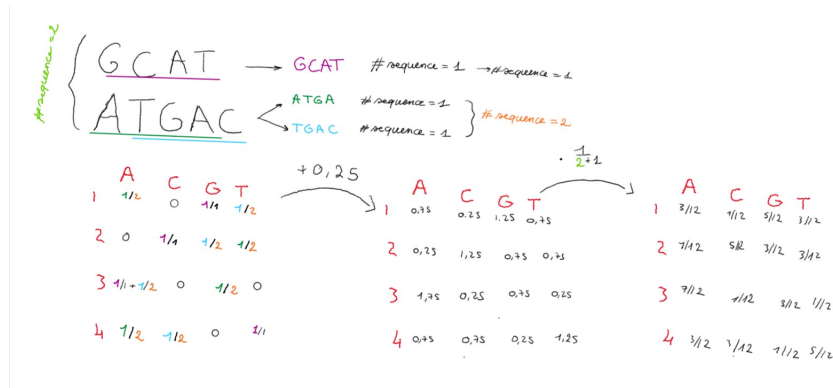 #sequence=2
GCAT → GCAT #sequence = 1 → #sequence = 1
ATGAC
ATGA #sequence = 1
TGAC #sequence = 1
#sequence = 2
+0,25
· 1/2+1
A C G T
1 1/2 0 1/1 1/2
2 0 1/1 1/2 1/2
3 1/1+1/2 0 1/2 0
4 1/2 1/2 0 1/1
A C G T
1 0,75 0.25 1.25 0,75
2 0,25 1,25 0,75 0,75
3 1,75 0,25 0,75 0,25
4 0,75 0,75 0,25 1,25
A C G T
1 3/12 1/12 5/12 3/12
2 1/12 5/12 3/12 3/12
3 7/12 1/12 3/12 1/12
4 3/12 3/12 1/12 5/12